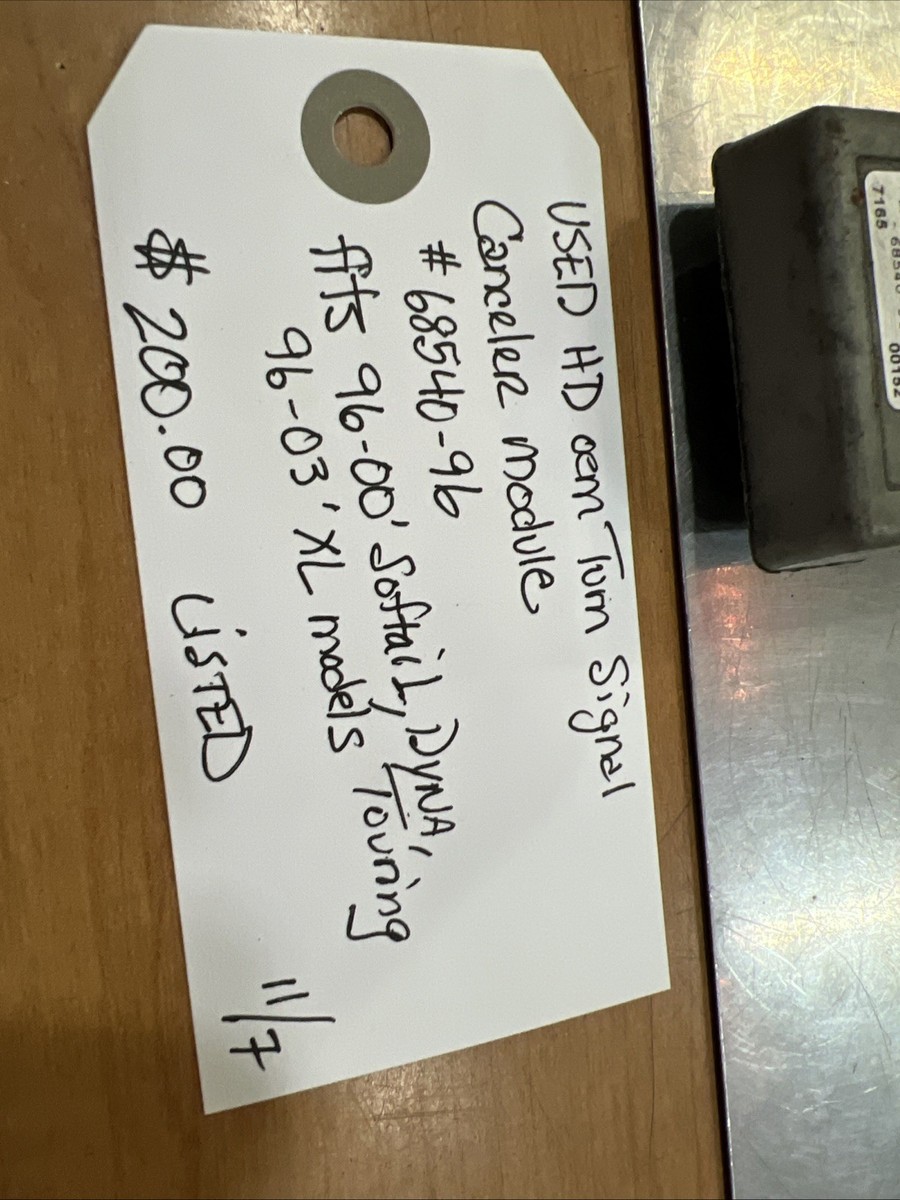 USED HD oem Turn Signal
Canceler module
# 68540-96
fits 96-00' Softail, DYNA,
Touring
96-03' XL models
$ 200.00 LiSTED
11/7
7165
00162